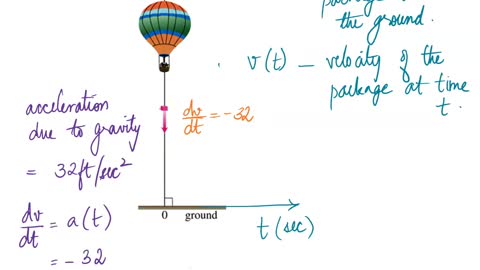 package
the ground.
v(t) – velocity of the
package at time
t.
acceleration
due to gravity
= 32ft/sec²
dv/dt = a(t)
= -32
dv/dt = -32
0 ground
t(sec)